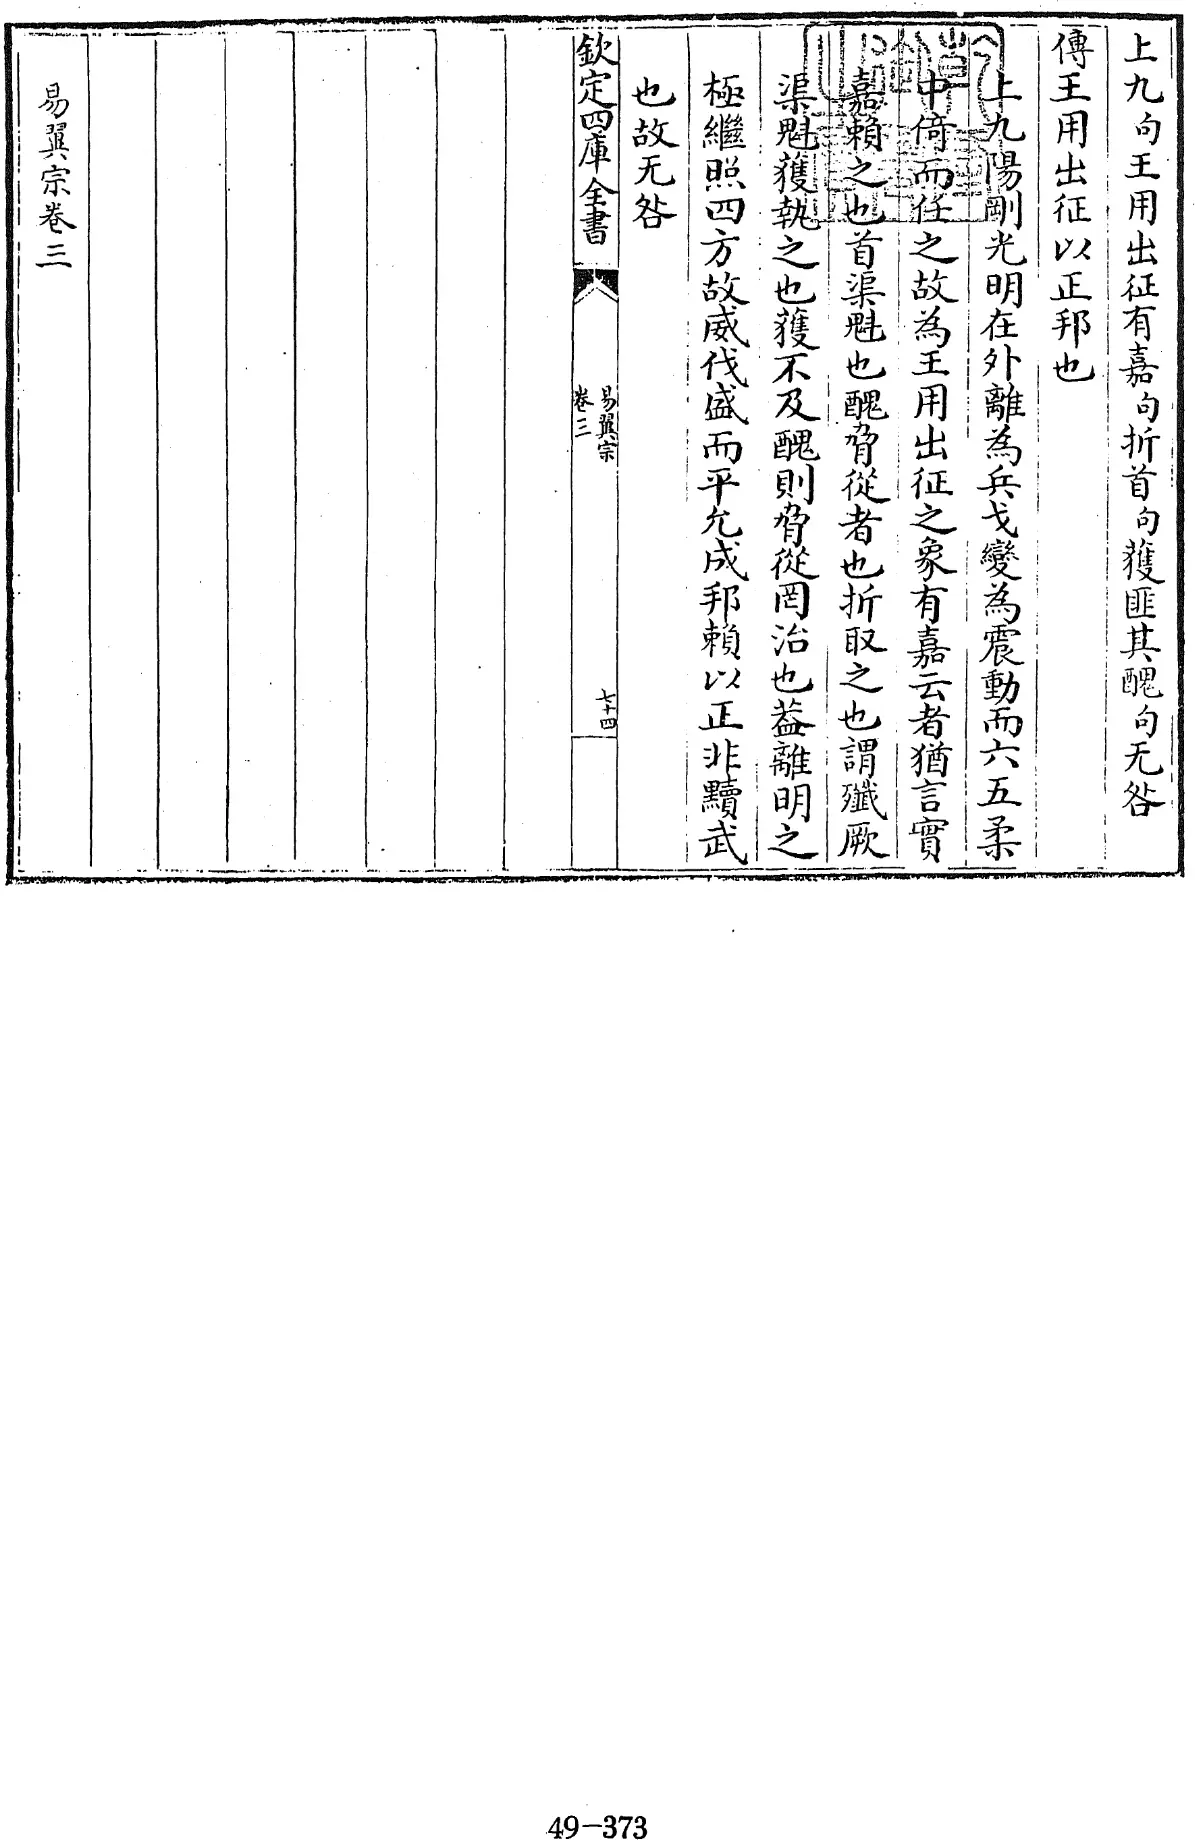 上九句王用出征有嘉句折首句獲匪其醜句无咎
傳王用出征以正邦也
上九陽剛光明在外離為兵戈變為震動而六五柔
中倚而任之故為王用出征之象有嘉云者猶言實
嘉賴之也首渠魁也醜脅從者也折取之也謂殲厥
渠魁獲執之也獲不及醜則脅從罔治也葢離明之
極繼照四方故威伐盛而平允成邦賴以正非黷武
也故无咎
欽定四庫全書
易翼宗
卷三
七十四
易翼宗卷三
49-373